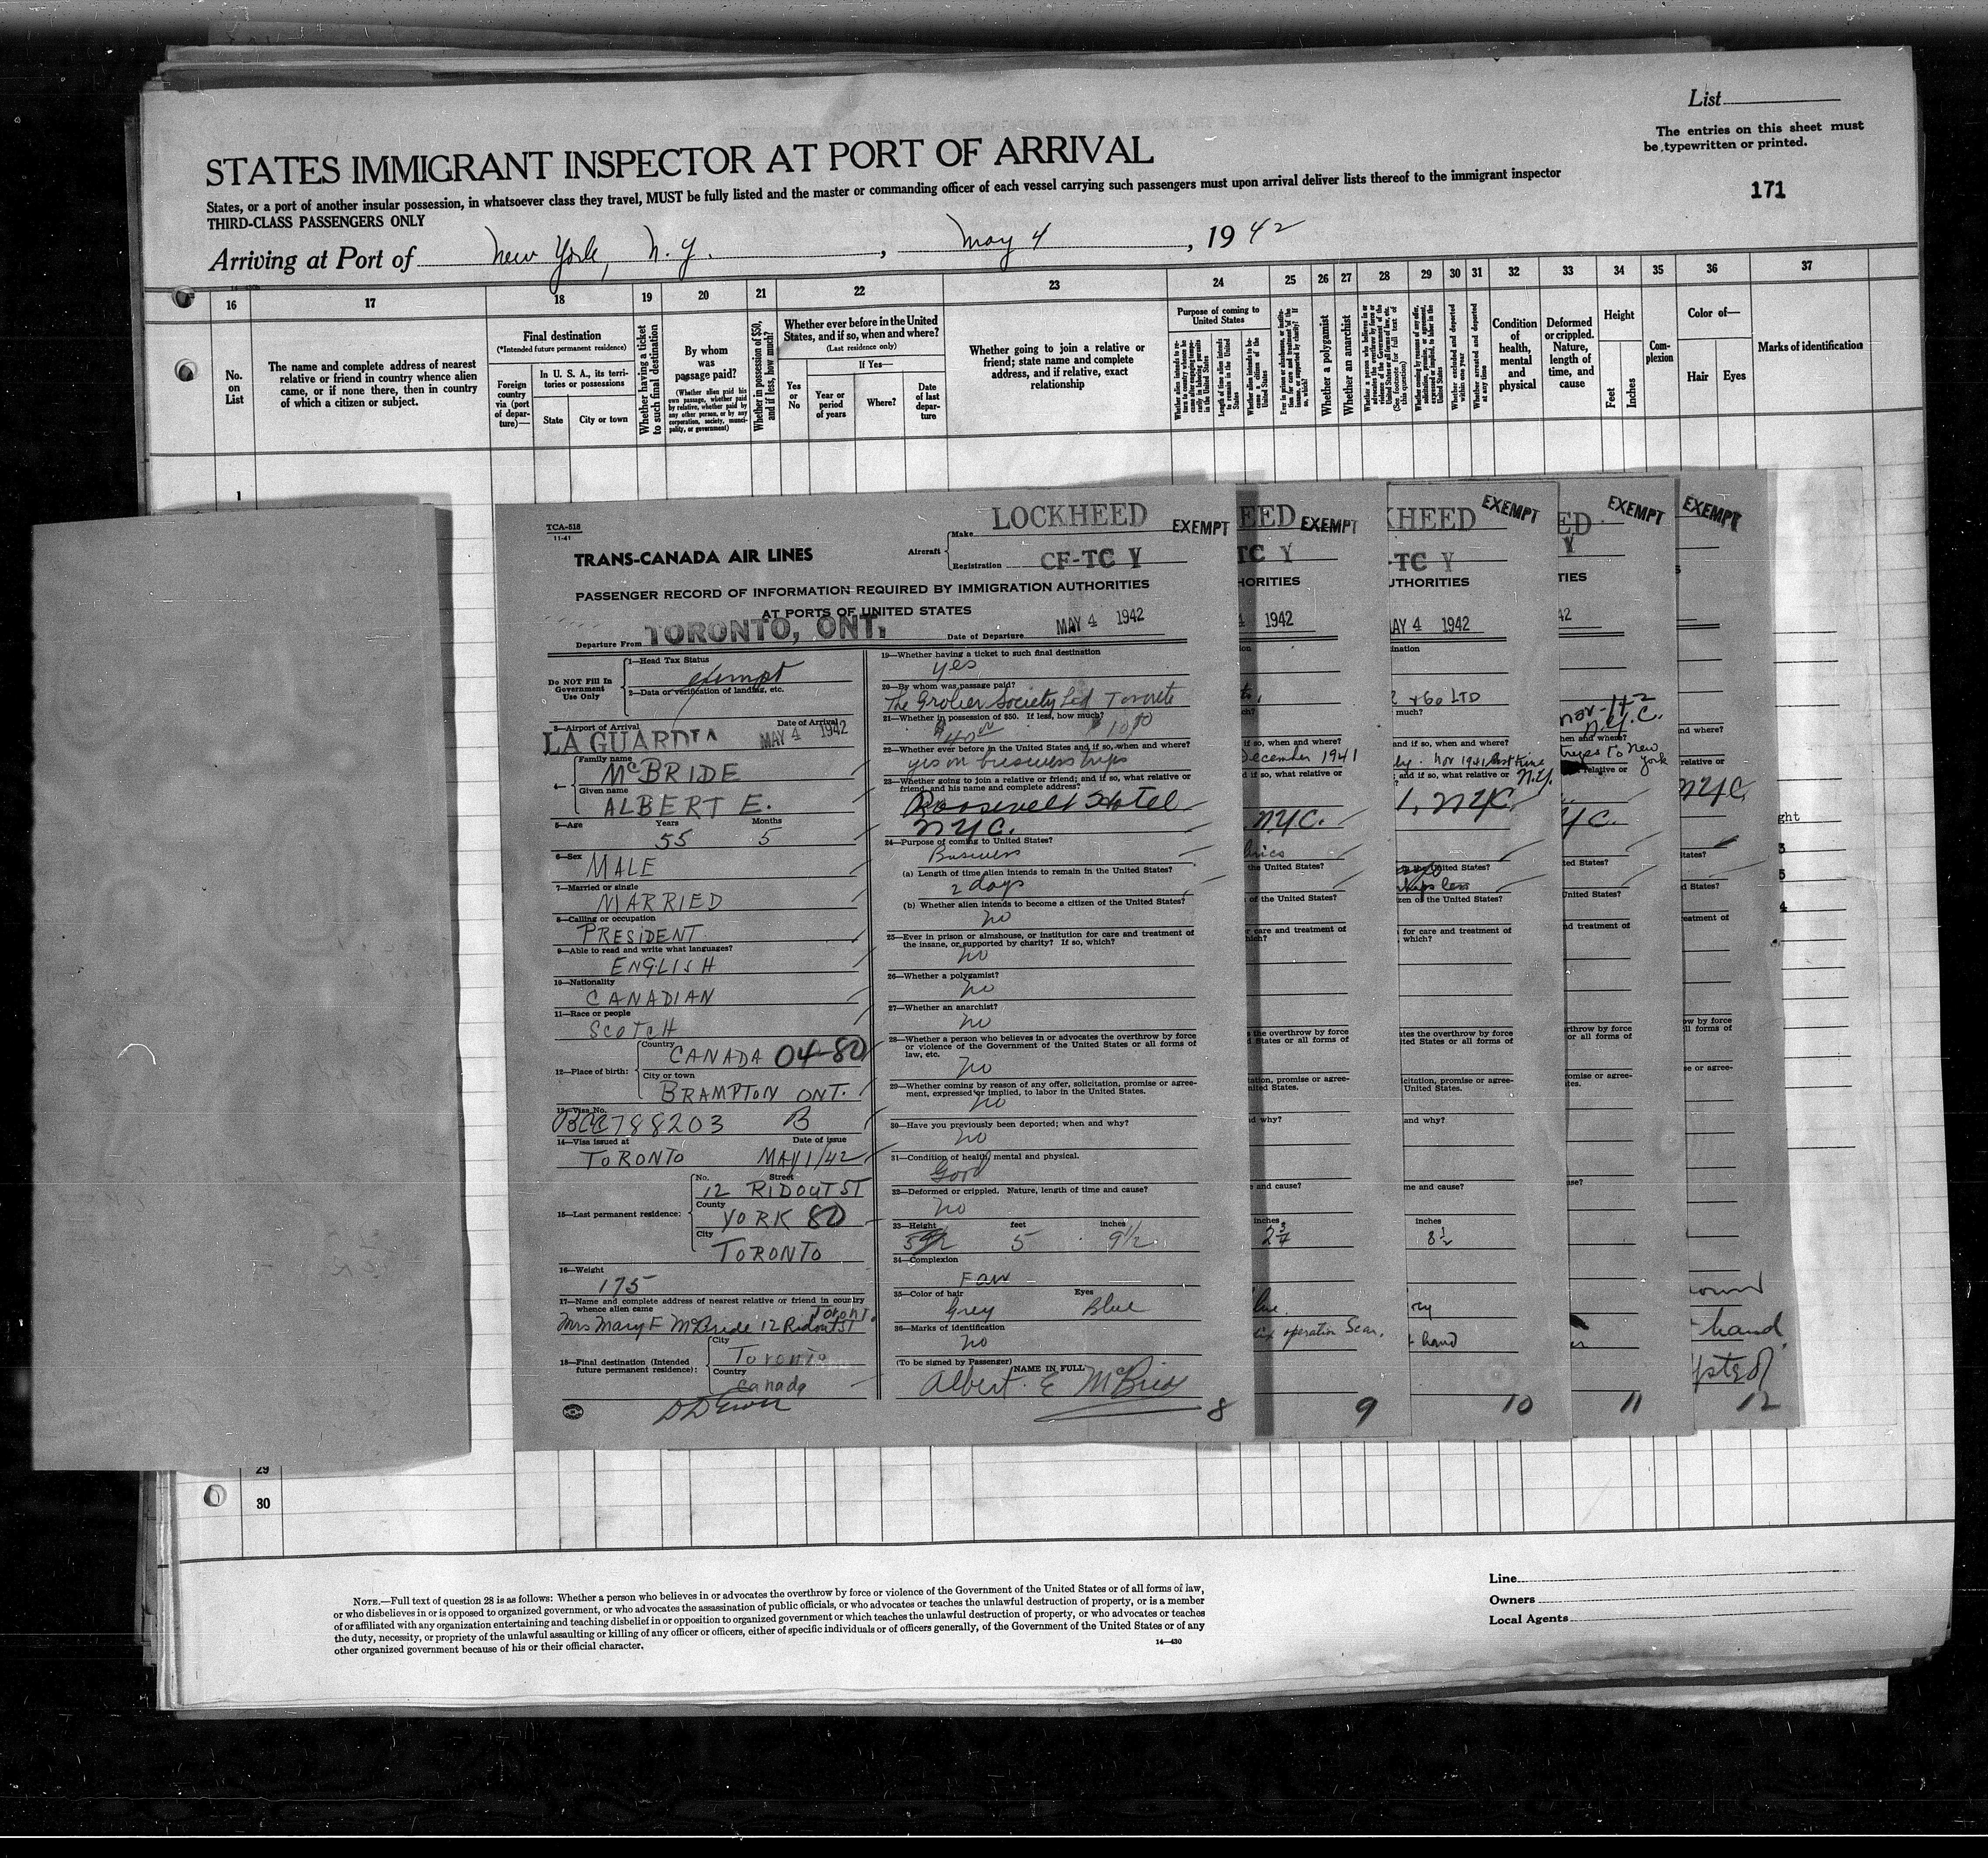 List
The entries on this sheet must
be typewritten or printed.
STATES IMMIGRANT INSPECTOR AT PORT OF ARRIVAL
States, or a port of another insular possession, in whatsoever class they travel, MUST be fully listed and the master or commanding officer of each vessel carrying such passengers must upon arrival deliver lists thereof to the immigrant inspector
THIRD-CLASS PASSENGERS ONLY
171
Arriving at Port of New York, N.Y., May 4, 1942
16 17 18 19 20 21 22 23 24 25 26 27 28 29 30 31 32 33 34 35 36 37
No. on List
The name and complete address of nearest
relative or friend in country whence alien
came, or if none there, then in country
of which a citizen or subject.
Final destination
(*Intended future permanent residence)
Foreign country via (port of departure)—
In U. S. A., its territories or possessions
State
City or town
Whether having a ticket to such final destination
By whom was passage paid?
(Whether alien paid his own passage, whether paid by relative, whether paid by any other person, or by any corporation, society, municipality, or government)
Whether in possession of $50, and if less, how much?
Whether ever before in the United
States, and if so, when and where?
(Last residence only)
Yes or No
If Yes—
Year or period of years
Where?
Date of last departure
Whether going to join a relative or
friend; state name and complete
address, and if relative, exact
relationship
Purpose of coming to United States
Length of time alien intends to remain in the United States
Whether a polygamist
Whether an anarchist
Condition of health, mental and physical
Deformed or crippled. Nature, length of time, and cause
Height
Feet
Inches
Complexion
Color of—
Hair
Eyes
Marks of identification
1
TCA-518
11-41
TRANS-CANADA AIR LINES
Aircraft
Make LOCKHEED
EXEMPT
Registration CF-TC Y
PASSENGER RECORD OF INFORMATION REQUIRED BY IMMIGRATION AUTHORITIES
AT PORTS OF UNITED STATES
Departure From TORONTO, ONT.
Date of Departure MAY 4 1942
Do NOT Fill In
Government
Use Only
1—Head Tax Status
exempt
2—Data or verification of landing, etc.
3—Airport of Arrival
LA GUARDIA
Date of Arrival
MAY 4 1942
4—
Family name
McBRIDE
Given name
ALBERT E.
5—Age
Years 55
Months 5
6—Sex
MALE
7—Married or single
MARRIED
8—Calling or occupation
PRESIDENT
9—Able to read and write what languages?
ENGLISH
10—Nationality
CANADIAN
11—Race or people
SCOTCH
12—Place of birth:
Country
CANADA 04-80
City or town
BRAMPTON ONT.
13—Visa No.
788203 B
14—Visa issued at
TORONTO
Date of issue
MAY 1/42
15—Last permanent residence:
No. Street
12 RIDOUT ST
County
YORK 80
City
TORONTO
16—Weight
175
17—Name and complete address of nearest relative or friend in country
whence alien came
Mrs Mary F McBride 12 Ridout ST Toront.
18—Final destination (Intended
future permanent residence):
City
Toronto
Country
Canada
19—Whether having a ticket to such final destination
yes
20—By whom was passage paid?
The Grolier Society Ltd Toronto
21—Whether in possession of $50. If less, how much?
22—Whether ever before in the United States and if so, when and where?
yes on business trips
23—Whether going to join a relative or friend; and if so, what relative or
friend, and his name and complete address?
Roosevelt Hotel
NYC.
24—Purpose of coming to United States?
Business
(a) Length of time alien intends to remain in the United States?
2 days
(b) Whether alien intends to become a citizen of the United States?
no
25—Ever in prison or almshouse, or institution for care and treatment of
the insane, or supported by charity? If so, which?
no
26—Whether a polygamist?
no
27—Whether an anarchist?
no
28—Whether a person who believes in or advocates the overthrow by force
or violence of the Government of the United States or all forms of
law, etc.
no
29—Whether coming by reason of any offer, solicitation, promise or agree-
ment, expressed or implied, to labor in the United States.
no
30—Have you previously been deported; when and why?
no
31—Condition of health, mental and physical.
Good
32—Deformed or crippled. Nature, length of time and cause?
no
33—Height
feet 5
inches 9½
34—Complexion
Fair
35—Color of hair
Grey
Eyes
Blue
36—Marks of identification
no
(To be signed by Passenger)
NAME IN FULL
Albert E McBride
8
EED EXEMPT
TC Y
HORITIES
4 1942
December 1941
NYC.
inches
2¾
operation Scar.
9
KHEED EXEMPT
-TC Y
UTHORITIES
MAY 4 1942
& Co LTD
Nov 1941 last time
N.Y.
NYC
inches
8½
hand
10
ED EXEMPT
Y
TIES
42
N.Y.C.
trips to New
York
YC.
11
EXEMPT
NYC
hand
12
29
30
NOTE.—Full text of question 28 is as follows: Whether a person who believes in or advocates the overthrow by force or violence of the Government of the United States or of all forms of law,
or who disbelieves in or is opposed to organized government, or who advocates the assassination of public officials, or who advocates or teaches the unlawful destruction of property, or is a member
of or affiliated with any organization entertaining and teaching disbelief in or opposition to organized government or which teaches the unlawful destruction of property, or who advocates or teaches
the duty, necessity, or propriety of the unlawful assaulting or killing of any officer or officers, either of specific individuals or of officers generally, of the Government of the United States or of any
other organized government because of his or their official character.
14—430
Line
Owners
Local Agents